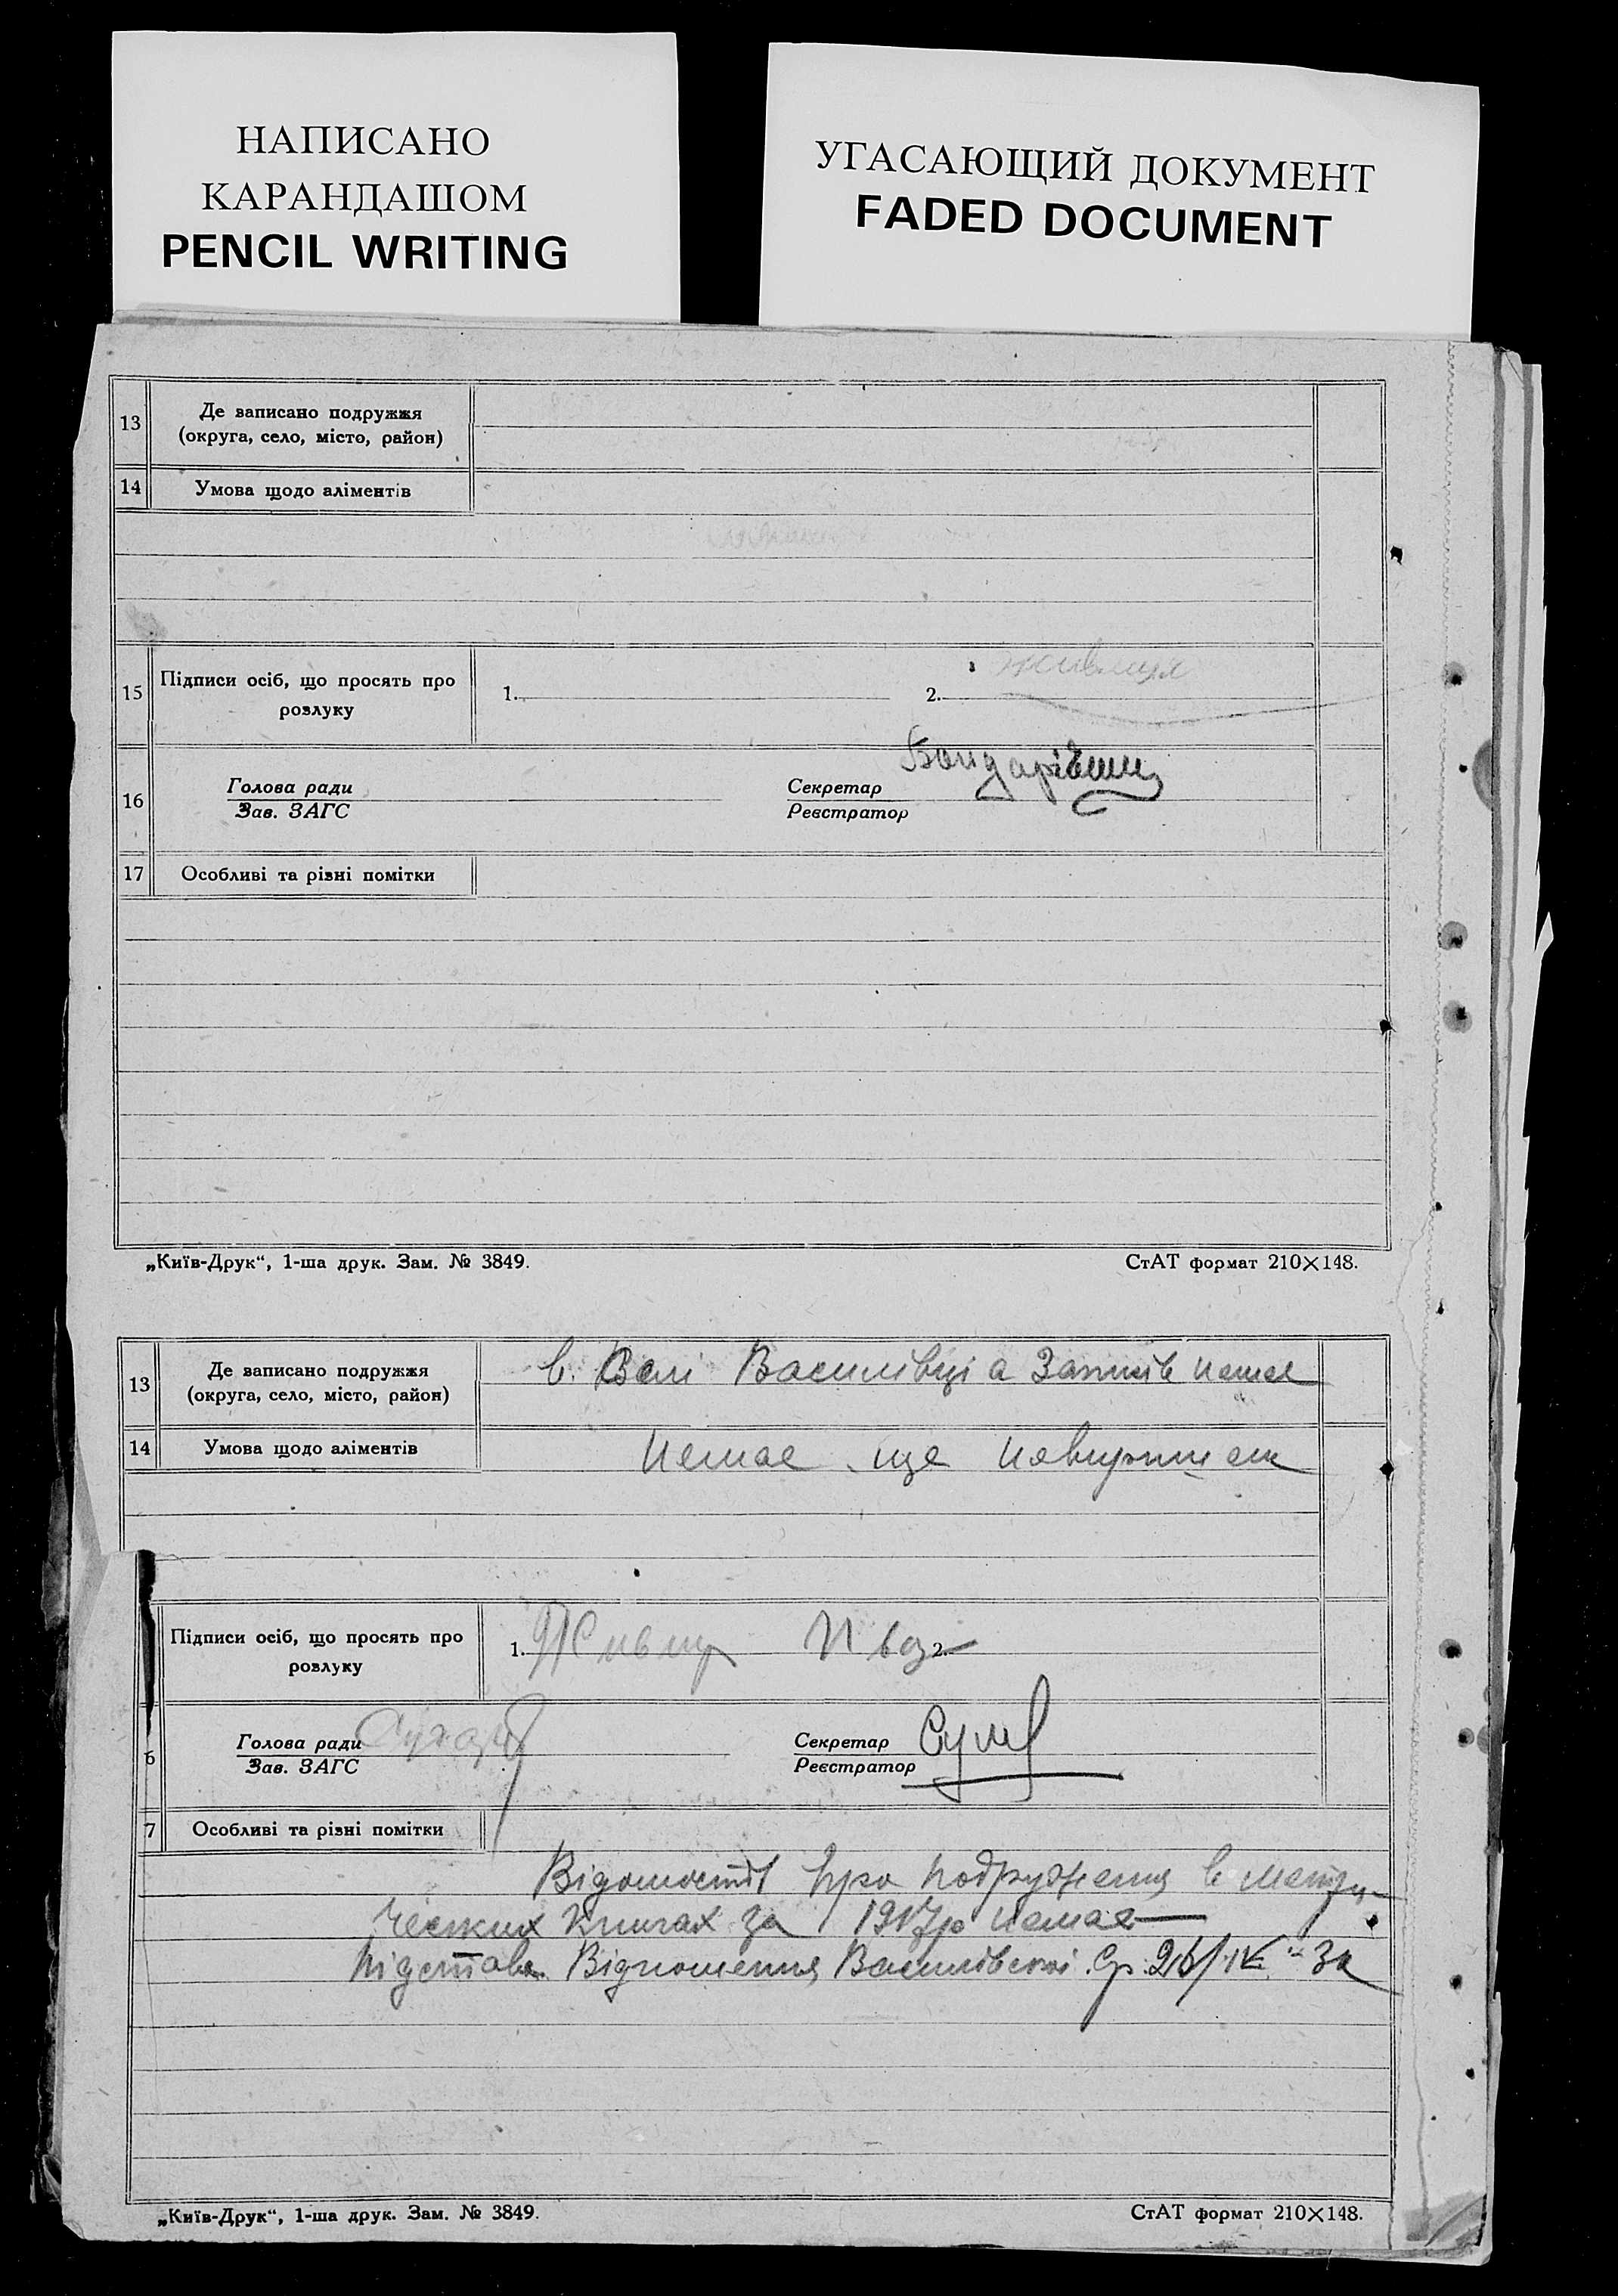 НАПИСАНО
КАРАНДАШОМ
PENCIL WRITING
УГАСАЮЩИЙ ДОКУМЕНТ
FADED DOCUMENT
13 Де записано подружжя
(округа, село, місто, район)
14 Умова щодо аліментів
15 Підписи осіб, що просять про
розлуку
1. 2.
16 Голова ради
Зав. ЗАГС
Секретар
Реєстратор
17 Особливі та різні помітки
„Київ-Друк“, 1-ша друк. Зам. № 3849.
СтАТ формат 210×148.
13 Де записано подружжя
(округа, село, місто, район)
в Василівці а Записів немає
14 Умова щодо аліментів
немає ще
Підписи осіб, що просять про
розлуку
1. 2.
6 Голова ради
Зав. ЗАГС
Секретар
Реєстратор
7 Особливі та різні помітки
про подруження в метри-
ческих книгах за 1917р немає
Підстава Відношення Василівської
„Київ-Друк“, 1-ша друк. Зам. № 3849.
СтАТ формат 210×148.